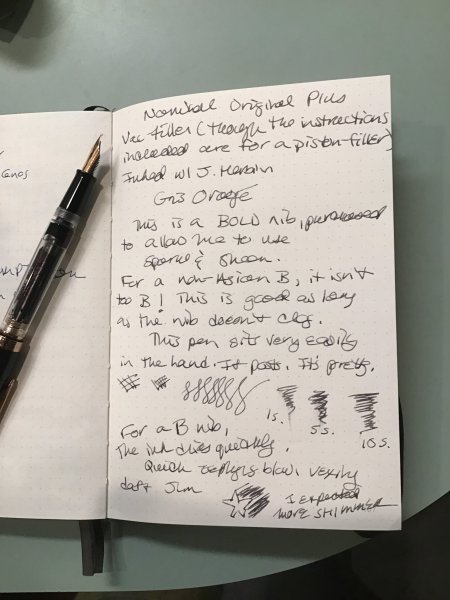 Nonibal Original Plus
Vac filler (though the instructions
included are for a piston-filler)
Inked w/ J. Herbin
Gris Orage
This is a BOLD nib, purchased
to allow me to use
sparkle & sheen.
For a non-Asian B, it isn't
to B! This is good as long
as the nib doesn't clog.
This pen sits very easily
in the hand. It posts. It's pretty.
1s.
5s.
10s.
For a B nib,
the ink dries quickly.
Quick zephyrs blow, vexing
daft Jim
I expected
more SHIMMER